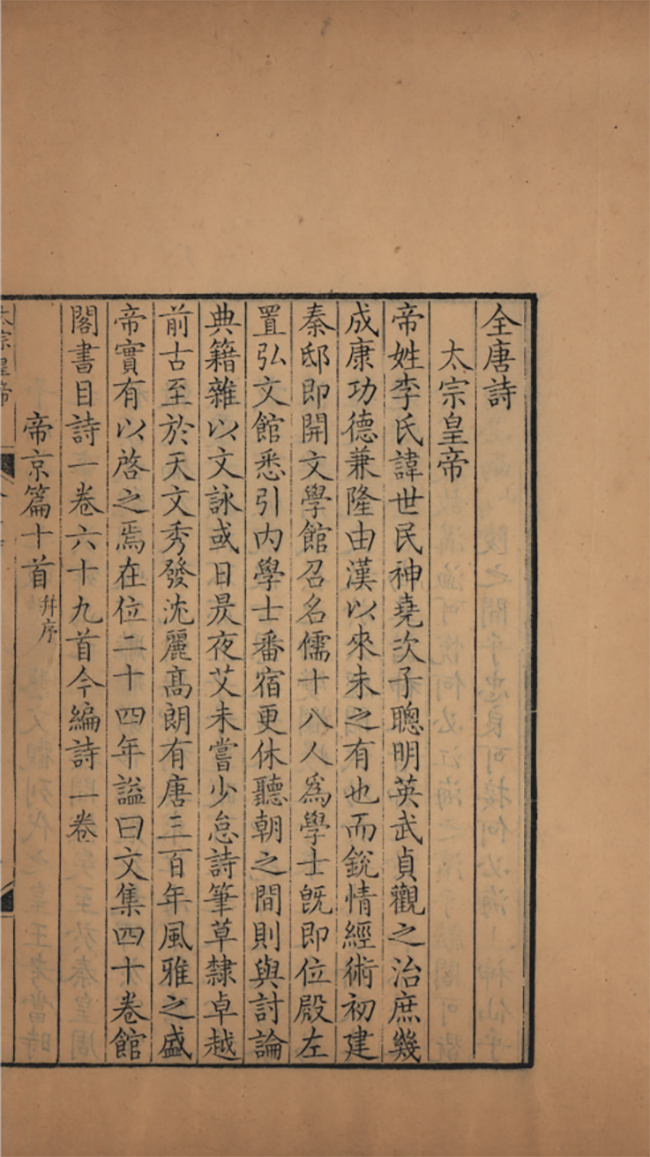 全唐詩
太宗皇帝
帝姓李氏諱世民神堯次子聰明英武貞觀之治庶幾
成康功德兼隆由漢以來未之有也而銳情經術初建
秦邸即開文學館召名儒十八人爲學士旣即位殿左
置弘文館悉引內學士番宿更休聽朝之間則與討論
典籍雜以文詠或日昃夜艾未嘗少怠詩筆草隸卓越
前古至於天文秀發沈麗高朗有唐三百年風雅之盛
帝實有以啓之焉在位二十四年謚曰文集四十卷館
閣書目詩一卷六十九首今編詩一卷
帝京篇十首幷序
太宗皇帝